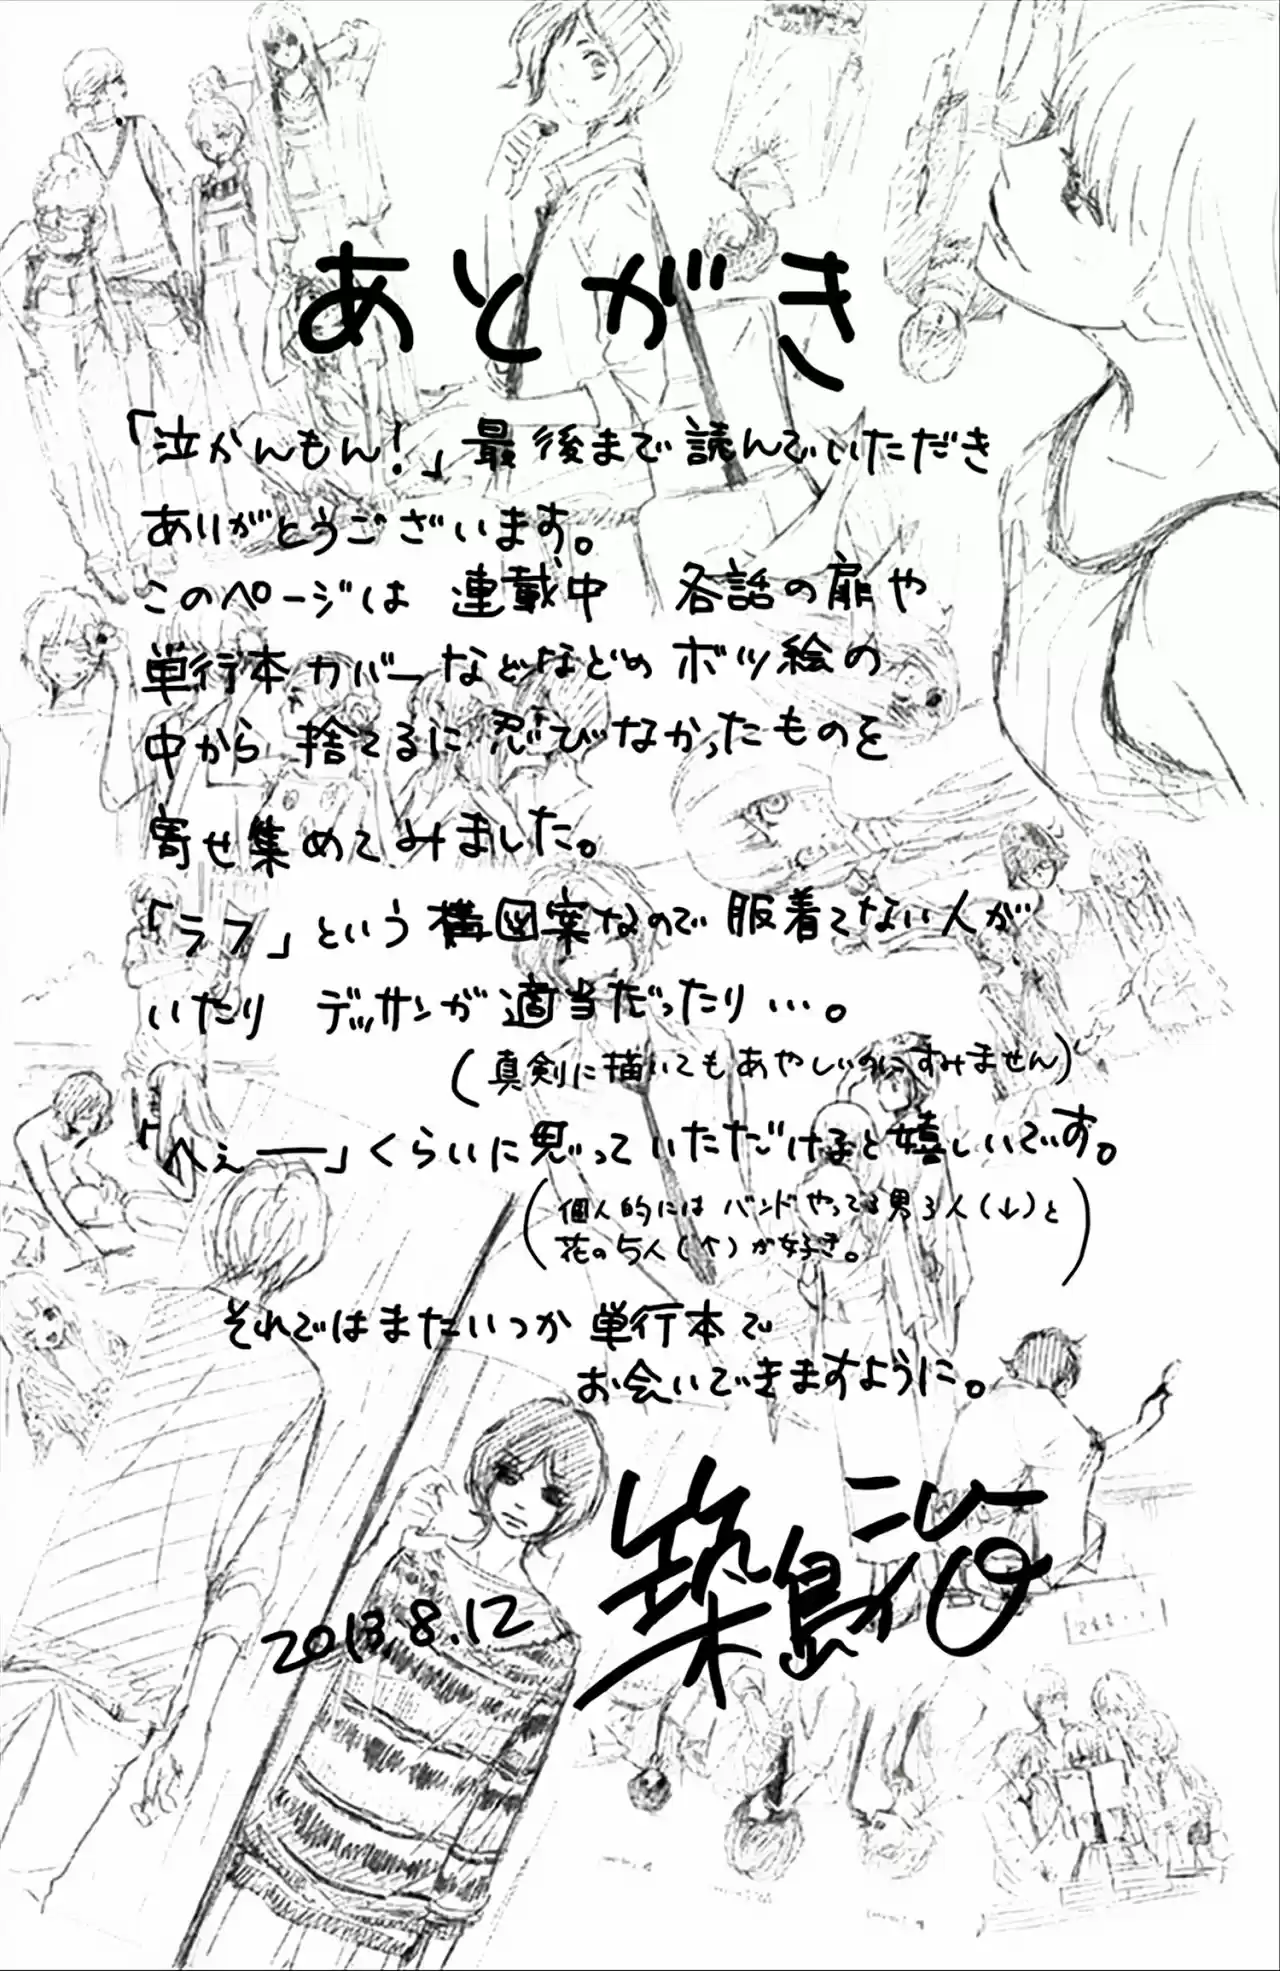 あとがき
「泣かんもん!」最後まで読んでいただき
ありがとうございます。
このページは 連載中 各話の扉や
単行本カバーなどなどの ボツ絵の
中から 捨てるに忍びなかったものを
寄せ集めてみました。
「ラフ」という構図案なので服着てない人が
いたり デッサンが適当だったり…。
(真剣に描いてもあやしいのにすみません)
「へぇー」くらいに思っていただけると嬉しいです。
(個人的には バンドやってる男3人(↓)と
花の5人(↑)が好き。)
それではまたいつか 単行本で
お会いできますように。
2013.8.12
築島治